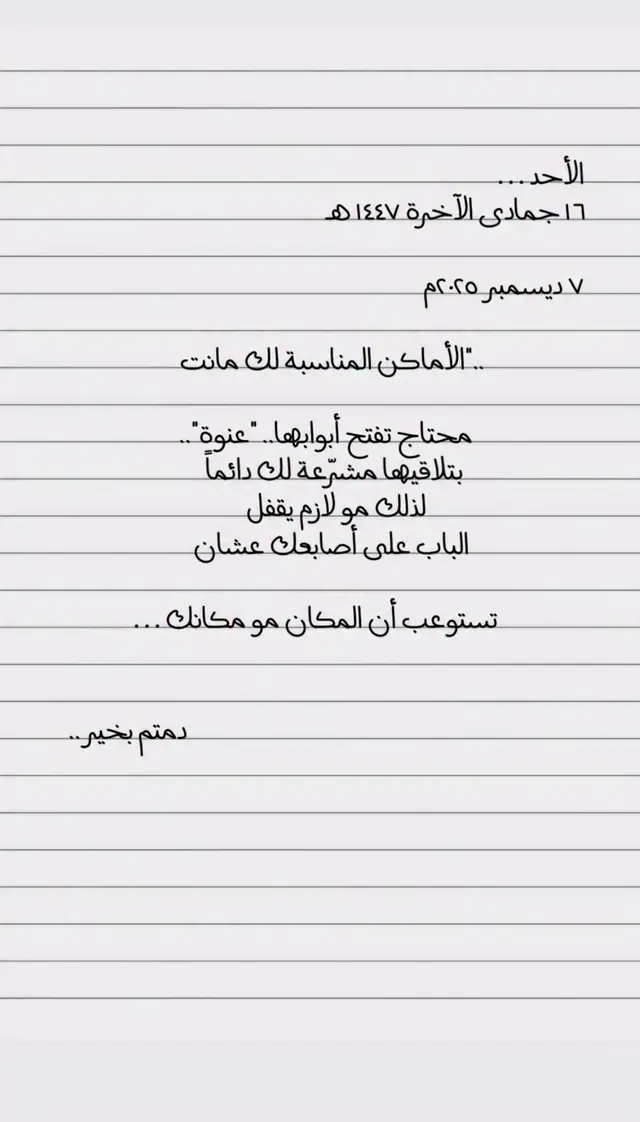 الأحد ...
١٦ جمادى الآخرة ١٤٤٧ هـ
٧ ديسمبر ٢٠٢٥م
.."الأماكن المناسبة لك مانت
محتاج تفتح أبوابها.. "عنوة"..
بتلاقيها مشرّعة لك دائماً
لذلك مو لازم يقفل
الباب على أصابعك عشان
تستوعب أن المكان مو مكانك ...
دمتم بخير..